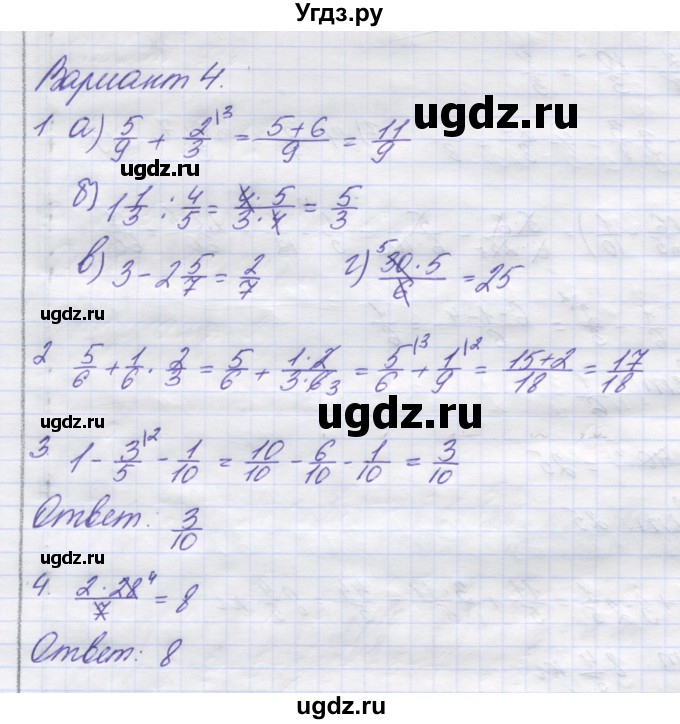 Угдз.ру
Вариант 4.
1 а) 5/9 + 2/3 |3 = (5+6)/9 = 11/9
ugdz.ru
б) 1 1/3 : 4/5 = (4·5)/(3·4) = 5/3
в) 3 - 2 5/7 = 2/7 г) 5 (30·5)/6 = 25
ugdz.ru ugdz.ru
2. 5/6 + 1/6 · 2/3 = 5/6 + (1·2)/(3·6 3) = 5/6 |3 + 1/9 |2 = (15+2)/18 = 17/18
ugdz.ru
3 1 - 3/5 |2 - 1/10 = 10/10 - 6/10 - 1/10 = 3/10
Ответ: 3/10
ugdz.ru ugdz.ru
4. (2·28 4)/7 = 8
Ответ: 8
ugdz.ru